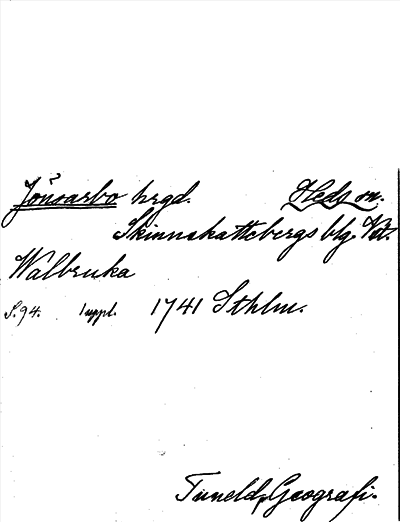 Jönsarbo hrgd. Heds sn.
Skinnskattebergs blg. Vstm.
Walbruka
S. 94. 1 uppl. 1741 Sthlm.
Tuneld, Geografi.